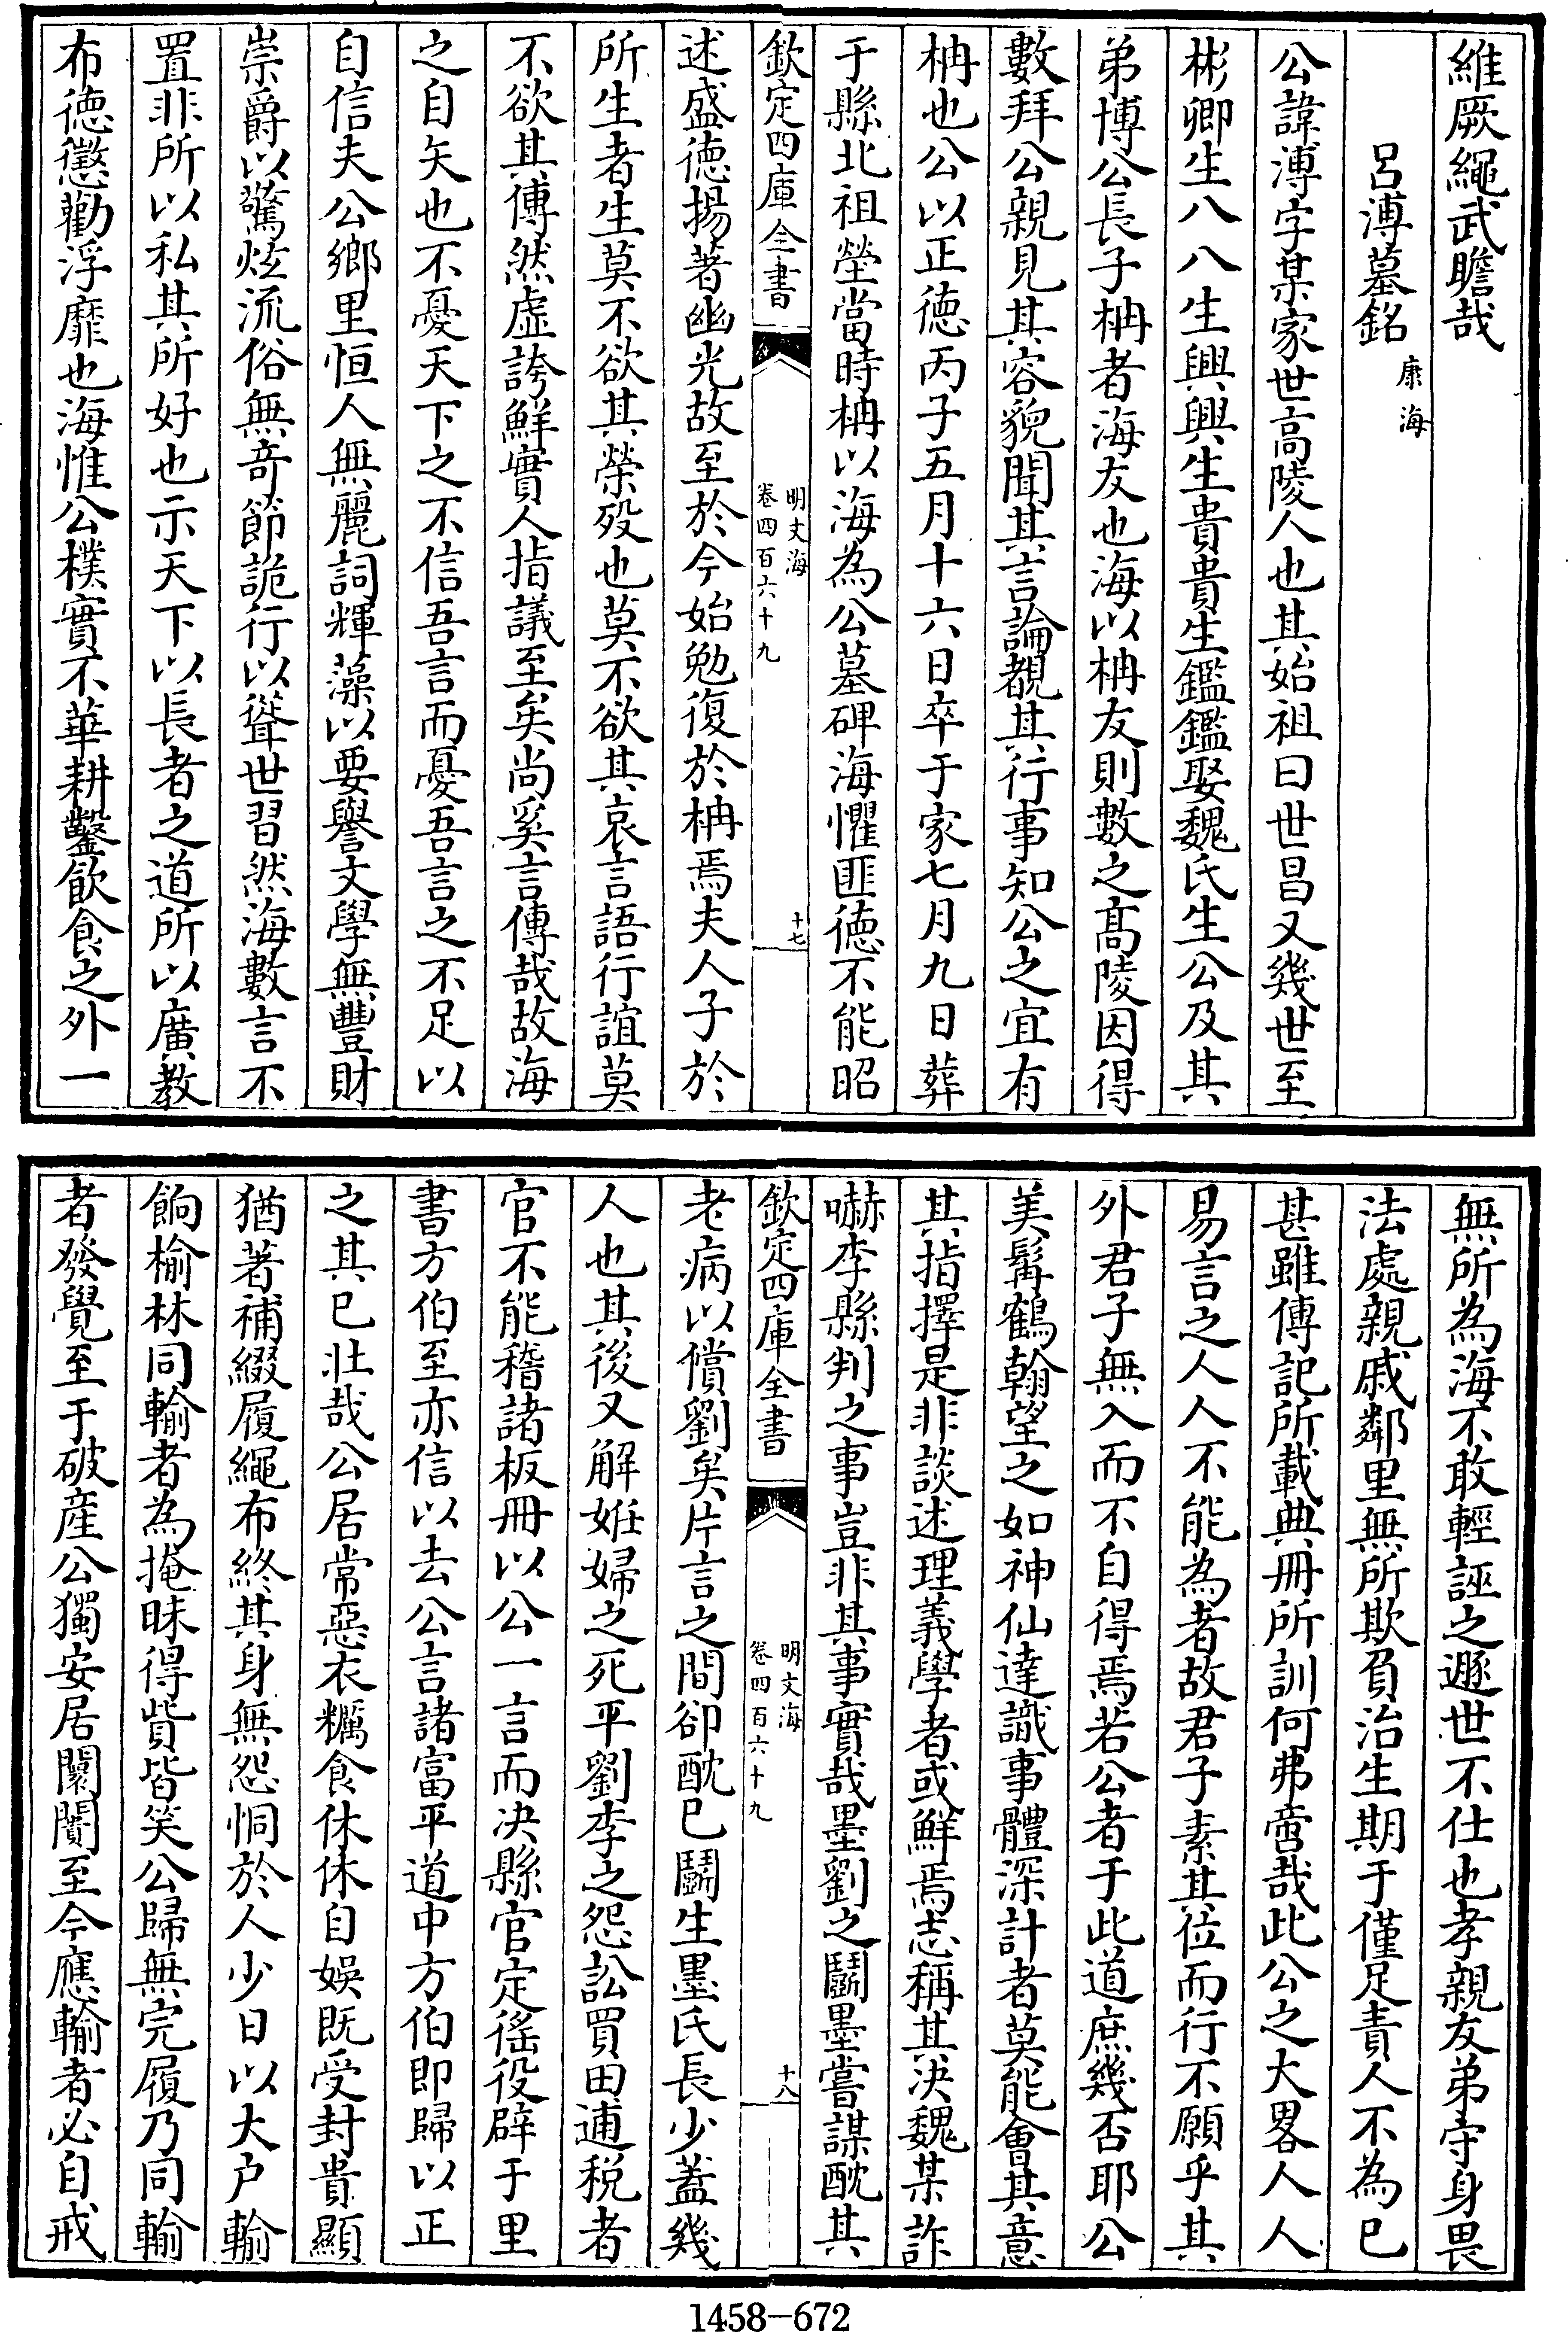 維厥繩武瞻哉
呂溥墓銘 康海
公諱溥字某家世高陵人也其始祖曰世昌又幾世至
彬卿生八八生興興生貴貴生鑑鑑娶魏氏生公及其
弟博公長子柟者海友也海以柟友則數之高陵因得
數拜公親見其容貌聞其言論覩其行事知公之宜有
柟也公以正德丙子五月十六日卒于家七月九日葬
于縣北祖塋當時柟以海為公墓碑海懼匪德不能昭
欽定四庫全書 明文海 卷四百六十九 十七
述盛德揚著幽光故至於今始勉復於柟焉夫人子於
所生者生莫不欲其榮歿也莫不欲其哀言語行誼莫
不欲其傳然虛誇鮮實人指議至矣尚奚言傳哉故海
之自矢也不憂天下之不信吾言而憂吾言之不足以
自信夫公鄉里恒人無麗詞輝藻以要譽文學無豐財
崇爵以驚炫流俗無奇節詭行以聳世習然海數言不
置非所以私其所好也示天下以長者之道所以廣教
布德懲勸浮靡也海惟公樸實不華耕鑿飲食之外一
無所為海不敢輕誣之遯世不仕也孝親友弟守身畏
法處親戚鄰里無所欺負治生期于僅足責人不為已
甚雖傳記所載典冊所訓何弗啻哉此公之大畧人人
易言之人人不能為者故君子素其位而行不願乎其
外君子無入而不自得焉若公者于此道庶幾否耶公
美髯鶴翰望之如神仙達識事體深計者莫能會其意
其指擇是非談述理義學者或鮮焉志稱其決魏某詐
嚇李縣判之事豈非其事實哉墨劉之鬬墨嘗謀酖其
欽定四庫全書 明文海 卷四百六十九 十八
老病以償劉矣片言之間卻酖已鬬生墨氏長少蓋幾
人也其後又解姙婦之死平劉李之怨訟買田逋稅者
官不能稽諸板冊以公一言而决縣官定徭役辟于里
書方伯至亦信以去公言諸富平道中方伯即歸以正
之其已壯哉公居常惡衣糲食休休自娛既受封貴顯
猶著補綴履繩布終其身無怨恫於人少日以大户輸
餉榆林同輸者為掩昧得貲皆笑公歸無完履乃同輸
者發覺至于破産公獨安居闤闠至今應輸者必自戒
1458-672